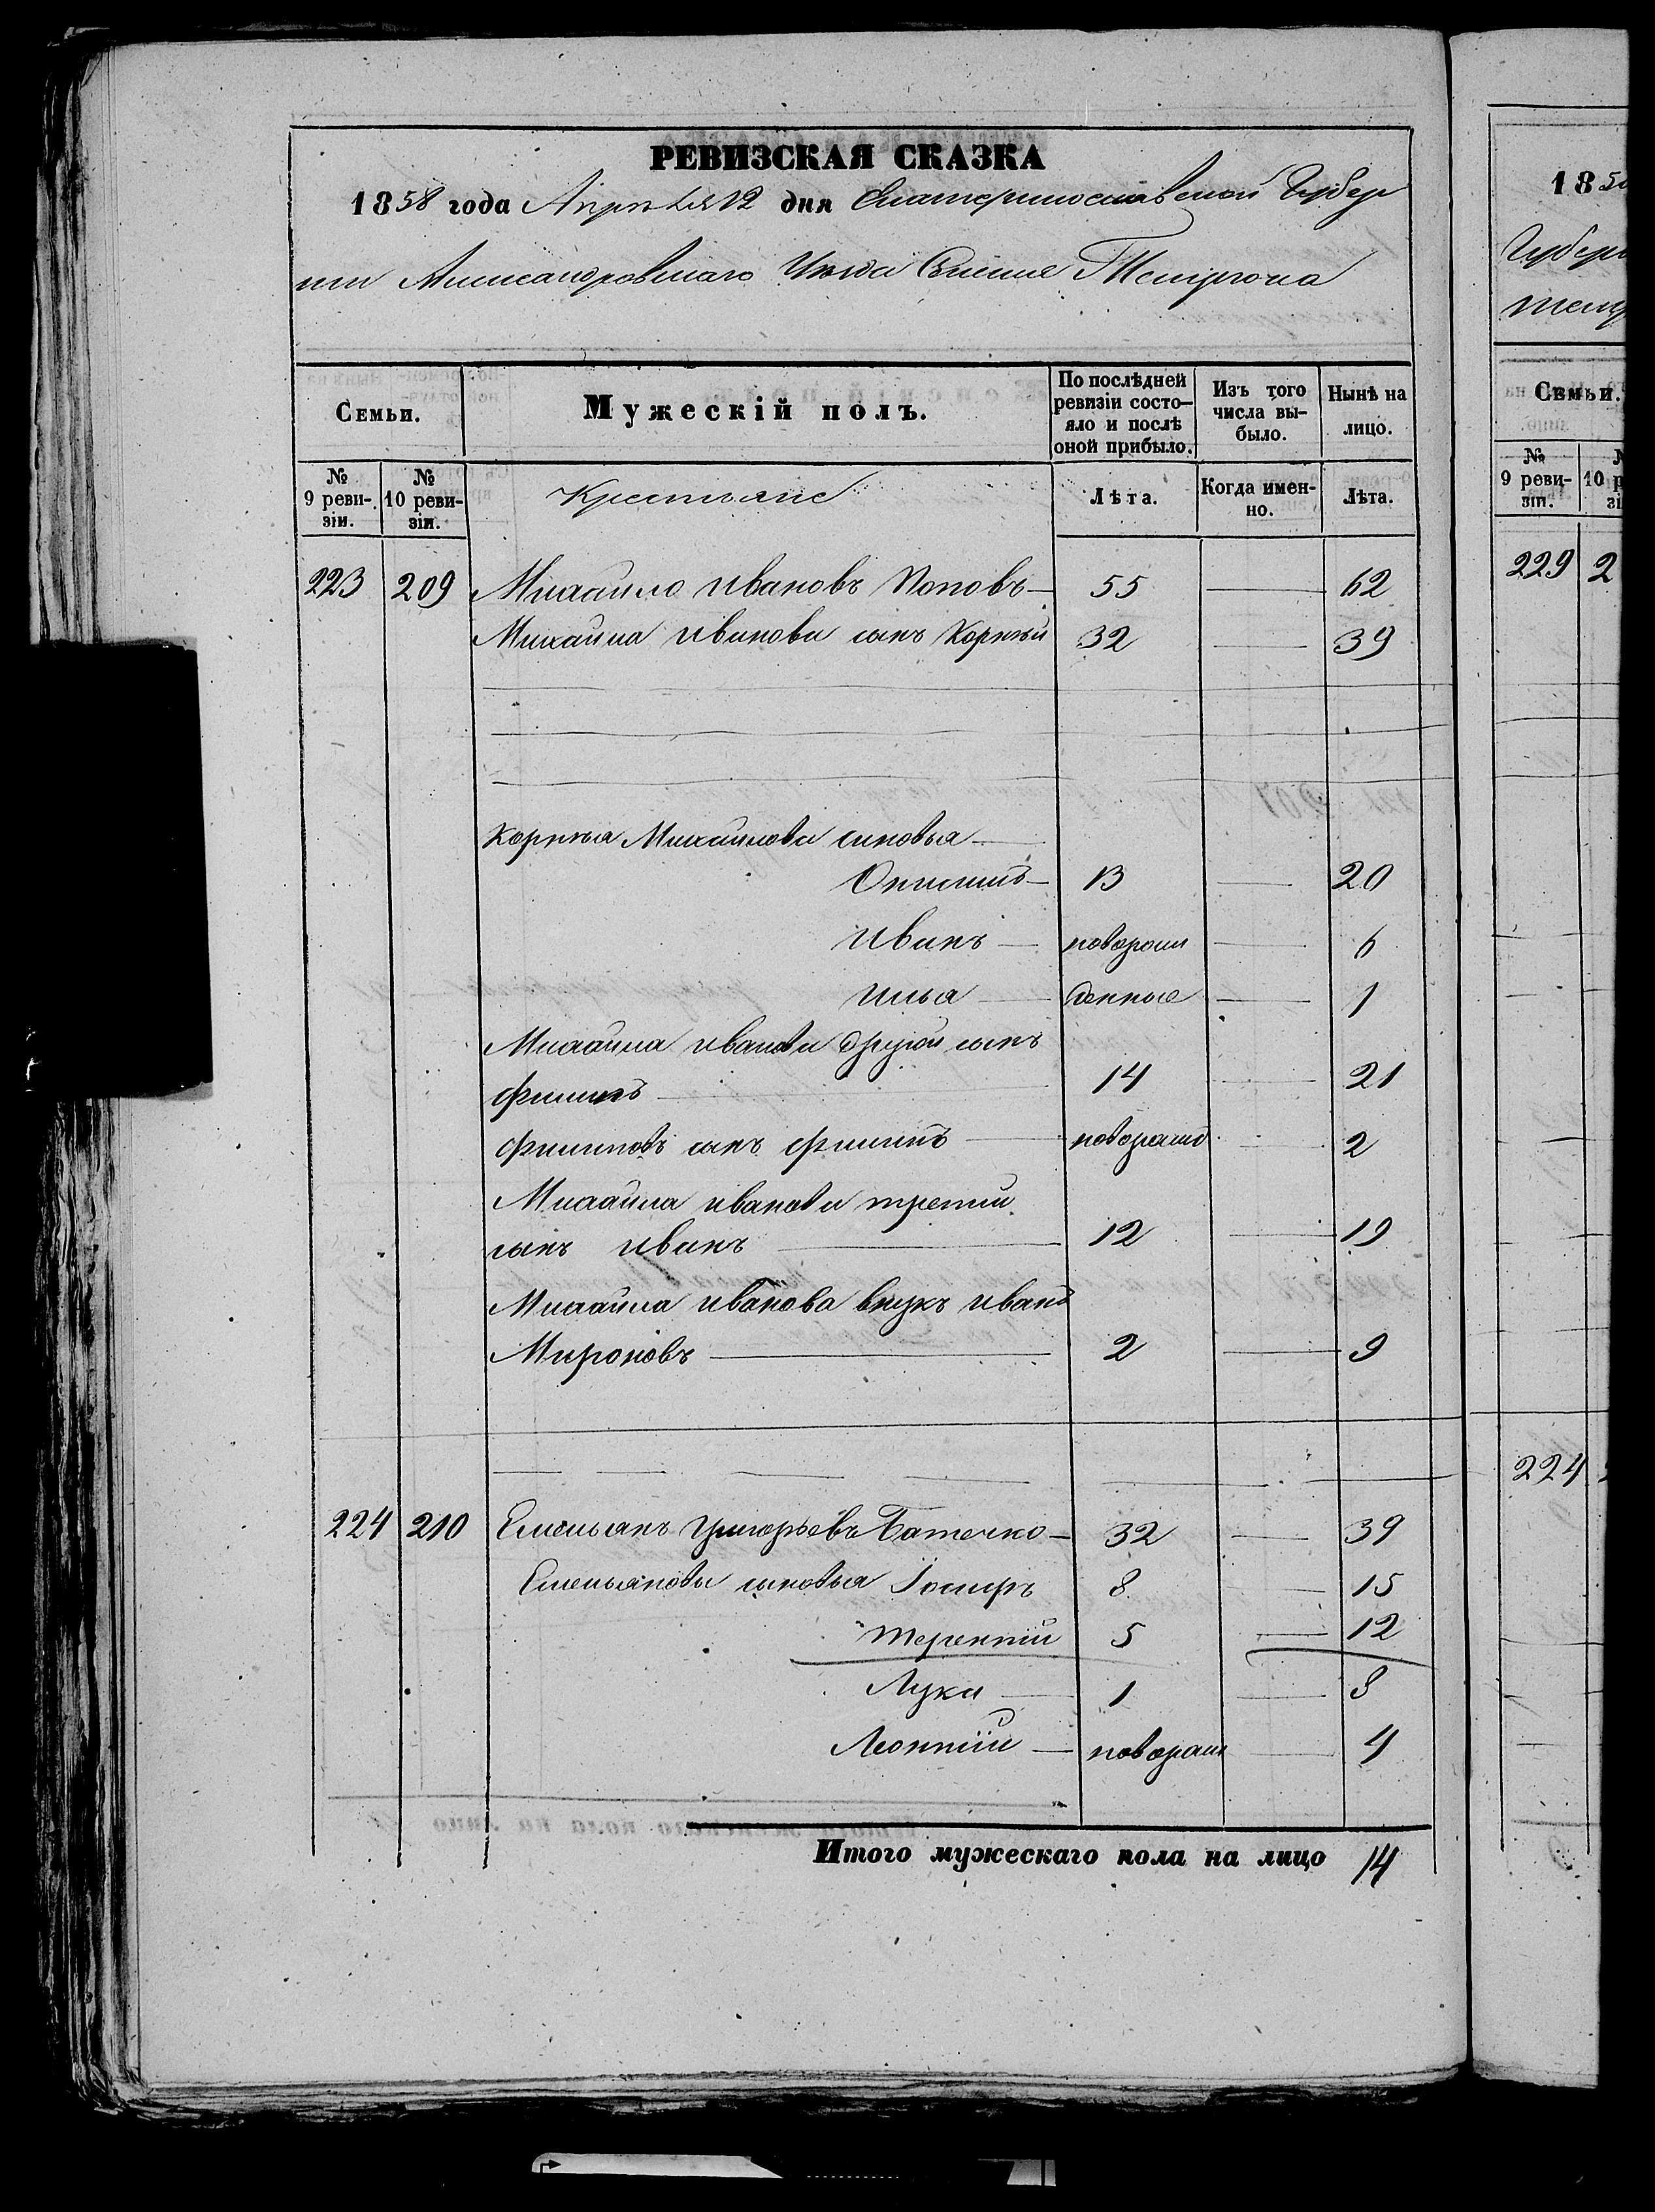 РЕВИЗСКАЯ СКАЗКА
1858 года Апреля 12 дня Екатеринославской Губер
нии Александровскаго Уезда Селение Темрюка
Семьи.
Мужескій полъ.
По послѣдней ревизіи состо-
яло и послѣ оной прибыло.
Изъ того числа вы-
было.
Нынѣ на лицо.
№ 9 реви-
зіи.
№ 10 реви-
зіи.
Крестьяне
Лѣта.
Когда имен-
но.
Лѣта.
223 209 Михайло Ивановъ Поповъ 55 62
Михайла Иванова сынъ Корнѣй 32 39
Корнѣя Михайлова сыновья
Онисимъ 13 20
Иванъ новорож 6
Илья денные 1
Михайла Иванова другой сынъ
Филипъ 14 21
Филиповъ сынъ Филипъ новорожд 2
Михайла Иванова третий
сынъ Иванъ 12 19
Михайла Иванова внукъ Иванъ
Мироновъ 2 9
224 210 Емельянъ Григорьевъ Батечко 32 39
Емельяновы сыновья Іосифъ 8 15
Терентий 5 12
Лука 1 8
Леонтій новорож 4
Итого мужескаго пола на лицо 14
185
Губерн
Семьи.
№ 9 реви-
зіи.
229 2
224